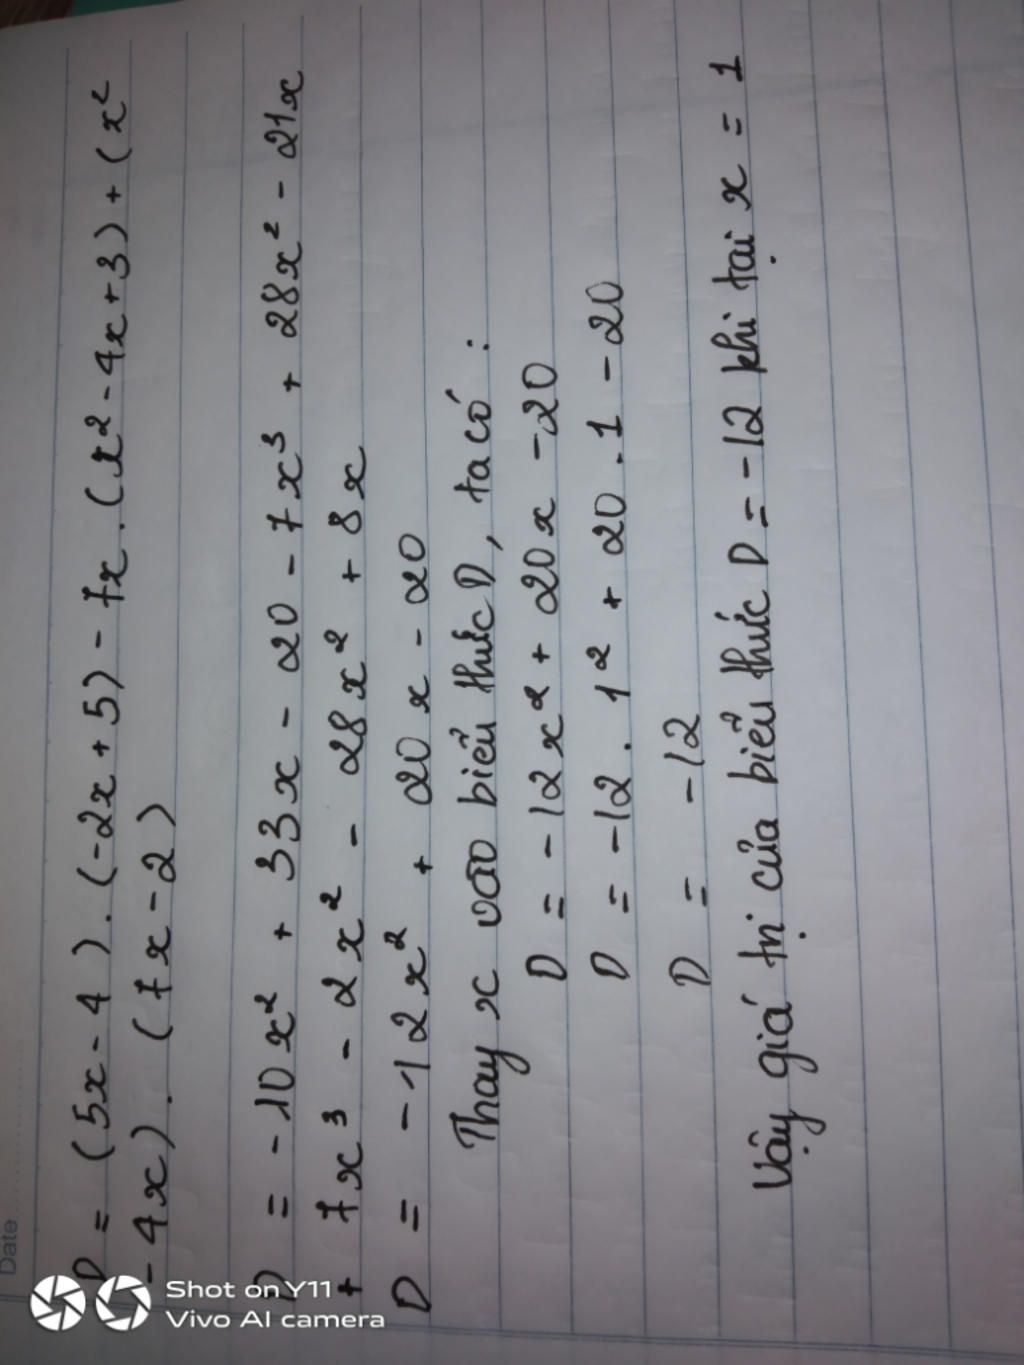 Date
D = (5x - 4) . (-2x + 5) - 7x . (x² - 4x + 3) + (x²
- 4x) . (7x - 2)
D = - 10x² + 33x - 20 - 7x³ + 28x² - 21x
+ 7x³ - 2x² - 28x² + 8x
D = - 12x² + 20x - 20
Thay x vào biểu thức D, ta có :
D = - 12x² + 20x - 20
D = -12 . 1² + 20 . 1 - 20
D = -12
Vậy giá trị của biểu thức D = -12 khi tại x = 1
Shot on Y11
Vivo AI camera